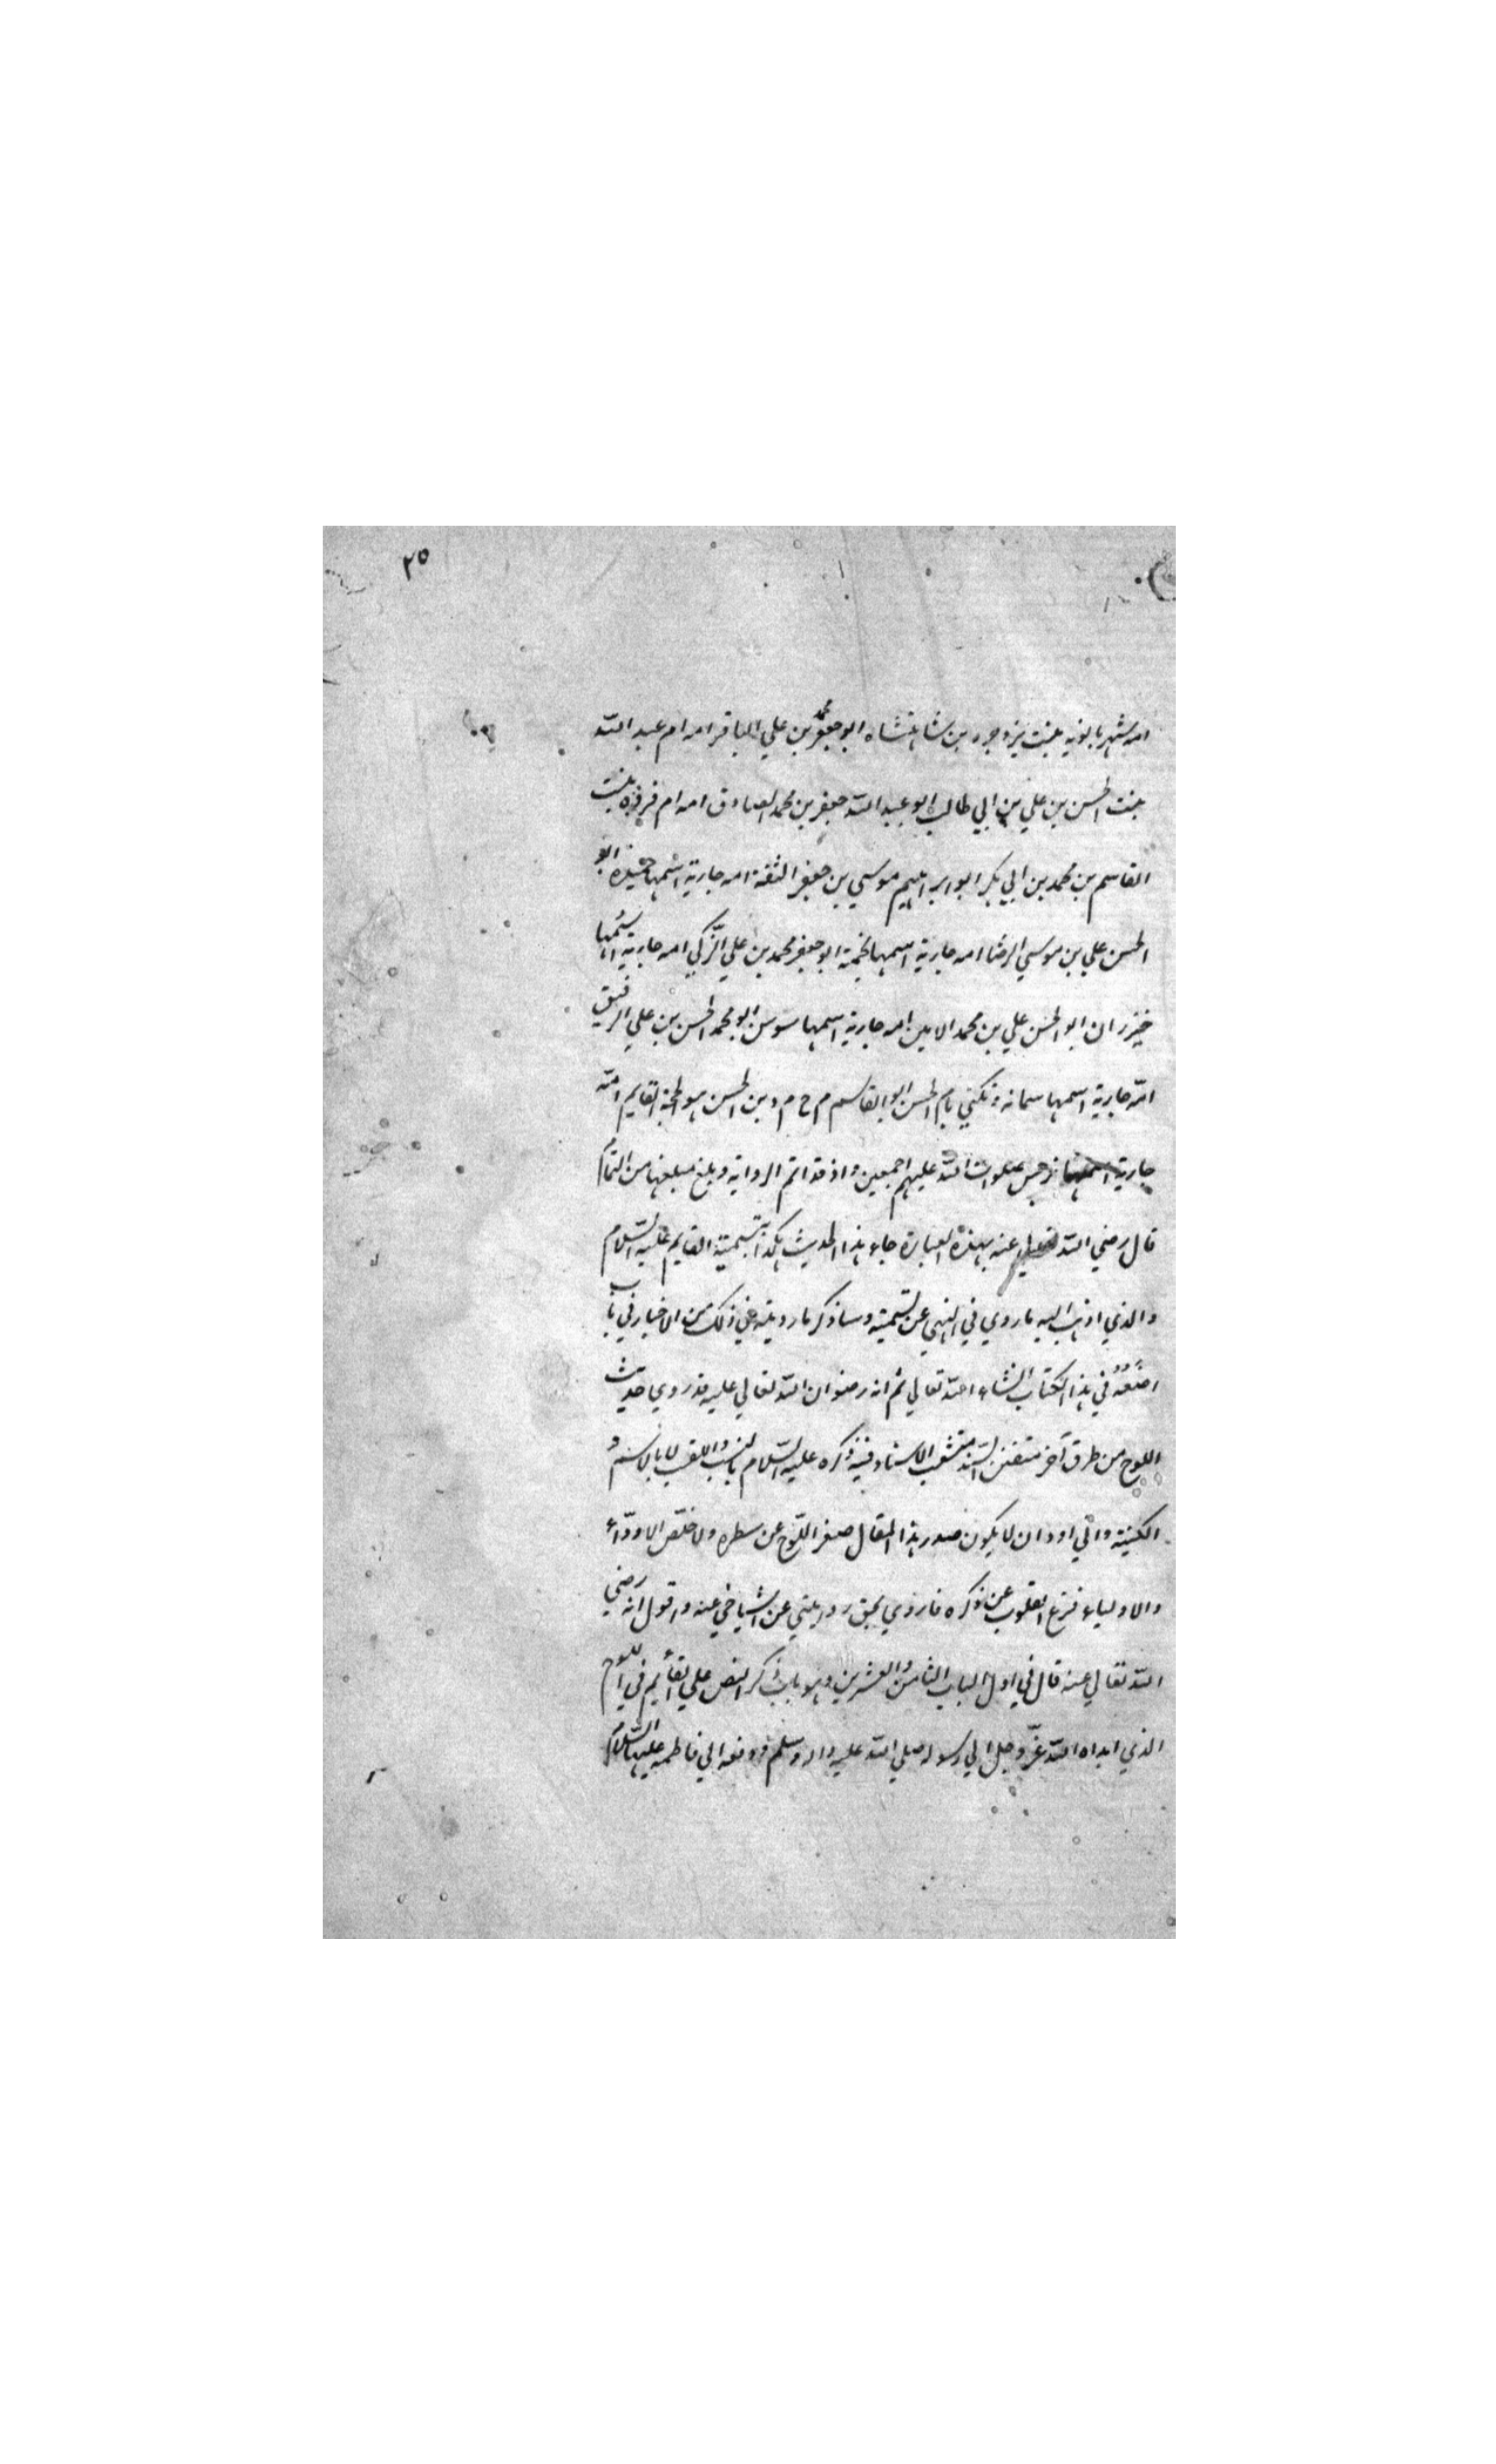 ٢٥
امه شهربانويه بنت يزدجرد بن شاهنشاه ابو جعفر محمد بن علي الباقر امه ام عبد الله
بنت الحسن بن علي بن ابي طالب ابو عبد الله جعفر بن محمد الصادق امه ام فروة بنت
القاسم بن محمد بن ابي بكر ابو ابراهيم موسي بن جعفر الثقة امه جارية اسمها حميدة ابو
الحسن علي بن موسي الرضا امه جارية اسمها نجمة ابو جعفر محمد بن علي الزّكي امه جارية اسمها
خيزران ابو الحسن علي بن محمد الامين امه جارية اسمها سوسن ابو محمد الحسن بن علي الرفيق
امّه جارية اسمها سمانه وتكني بام الحسن ابو القاسم م ح م د بن الحسن هو الحجة القايم امّه
جارية اسمها نرجس صلوات الله عليهم اجمعين واذ قد اتم الرواية وبلغ مبلغها من التمام
قال رضي الله عنه بهذه العبارة جاء هذا الحديث هكذا بتسمية القايم عليه السّلام
والذي اذهب اليه ما روي في النهي عن تسميته وساذكر ما رويته في ذلك من الاخبار في باب
اضعُهُ في هذا الكتاب انشاء الله تعالي ثم انه رضوان الله تعالي عليه قد روي حديث
اللوح من طرق آخر متفنن السّند متشعب الاسناد فيه ذكره عليه السّلام بالنسب واللقب لا بالاسم و
الكنيته واني اود ان لا يكون صدر هذا المقال صفر اللّوح عن سطره ولا خلّص الاودّاء
والاولياء فزع القلوب عن ذكره فاروي بحق روايتي عن اشياخي عنه واقول انه رضي
الله تعالي عنه قال في اول الباب الثامن والعشرين وهو باب ذكر النص علي القأيم في اللوح
الذي اهداه الله عزّ وجل الي رسوله صلي الله عليه واله وسلم ودفعه الي فاطمه عليها السّلام